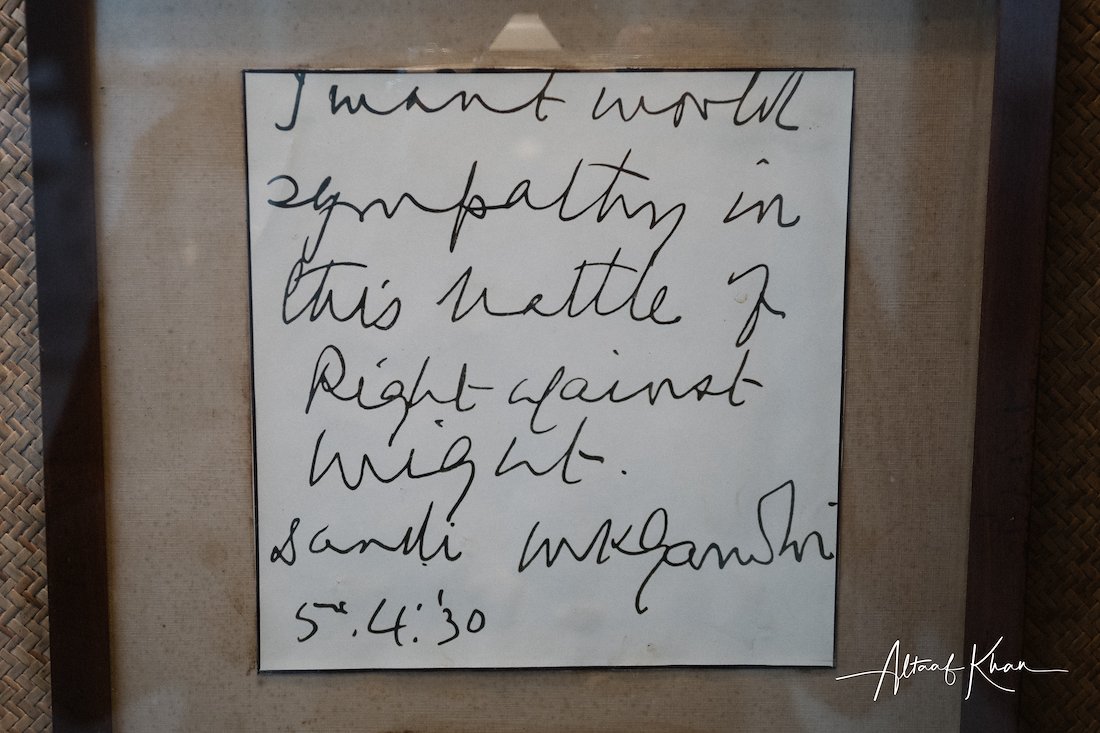 I want world
sympathy in
this battle of
Right against
might.
Sandi MKGandhi
5.4.'30
Altaaf Khan